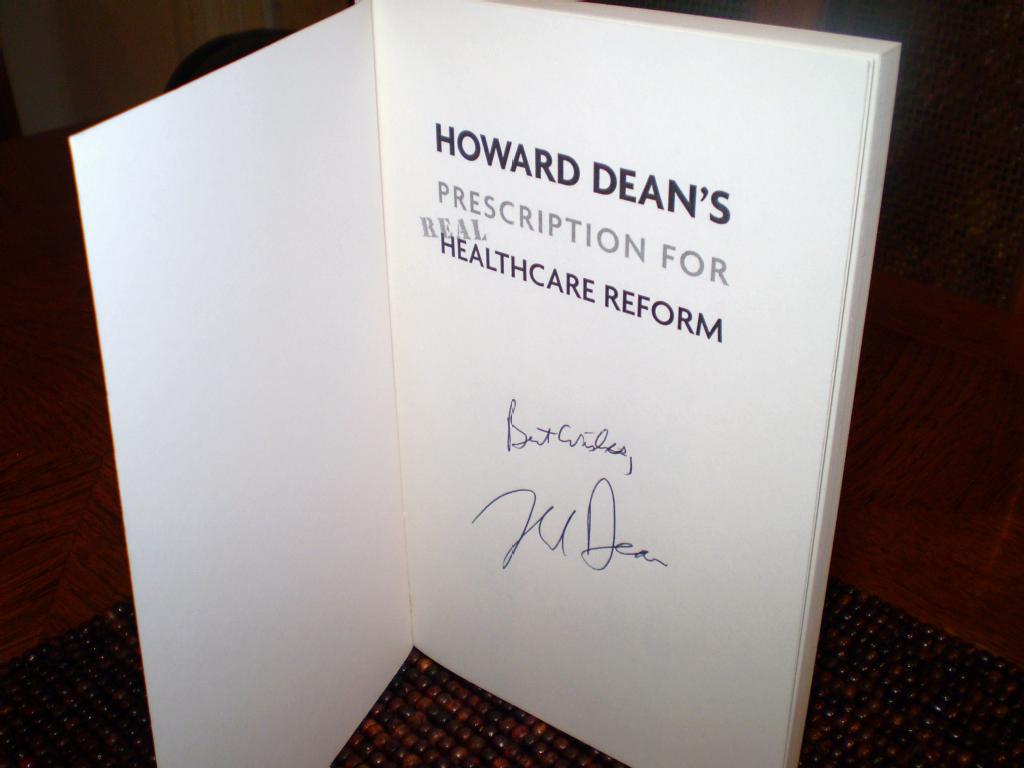 HOWARD DEAN'S
PRESCRIPTION FOR
REAL
HEALTHCARE REFORM
Best Wishes,
H Dean